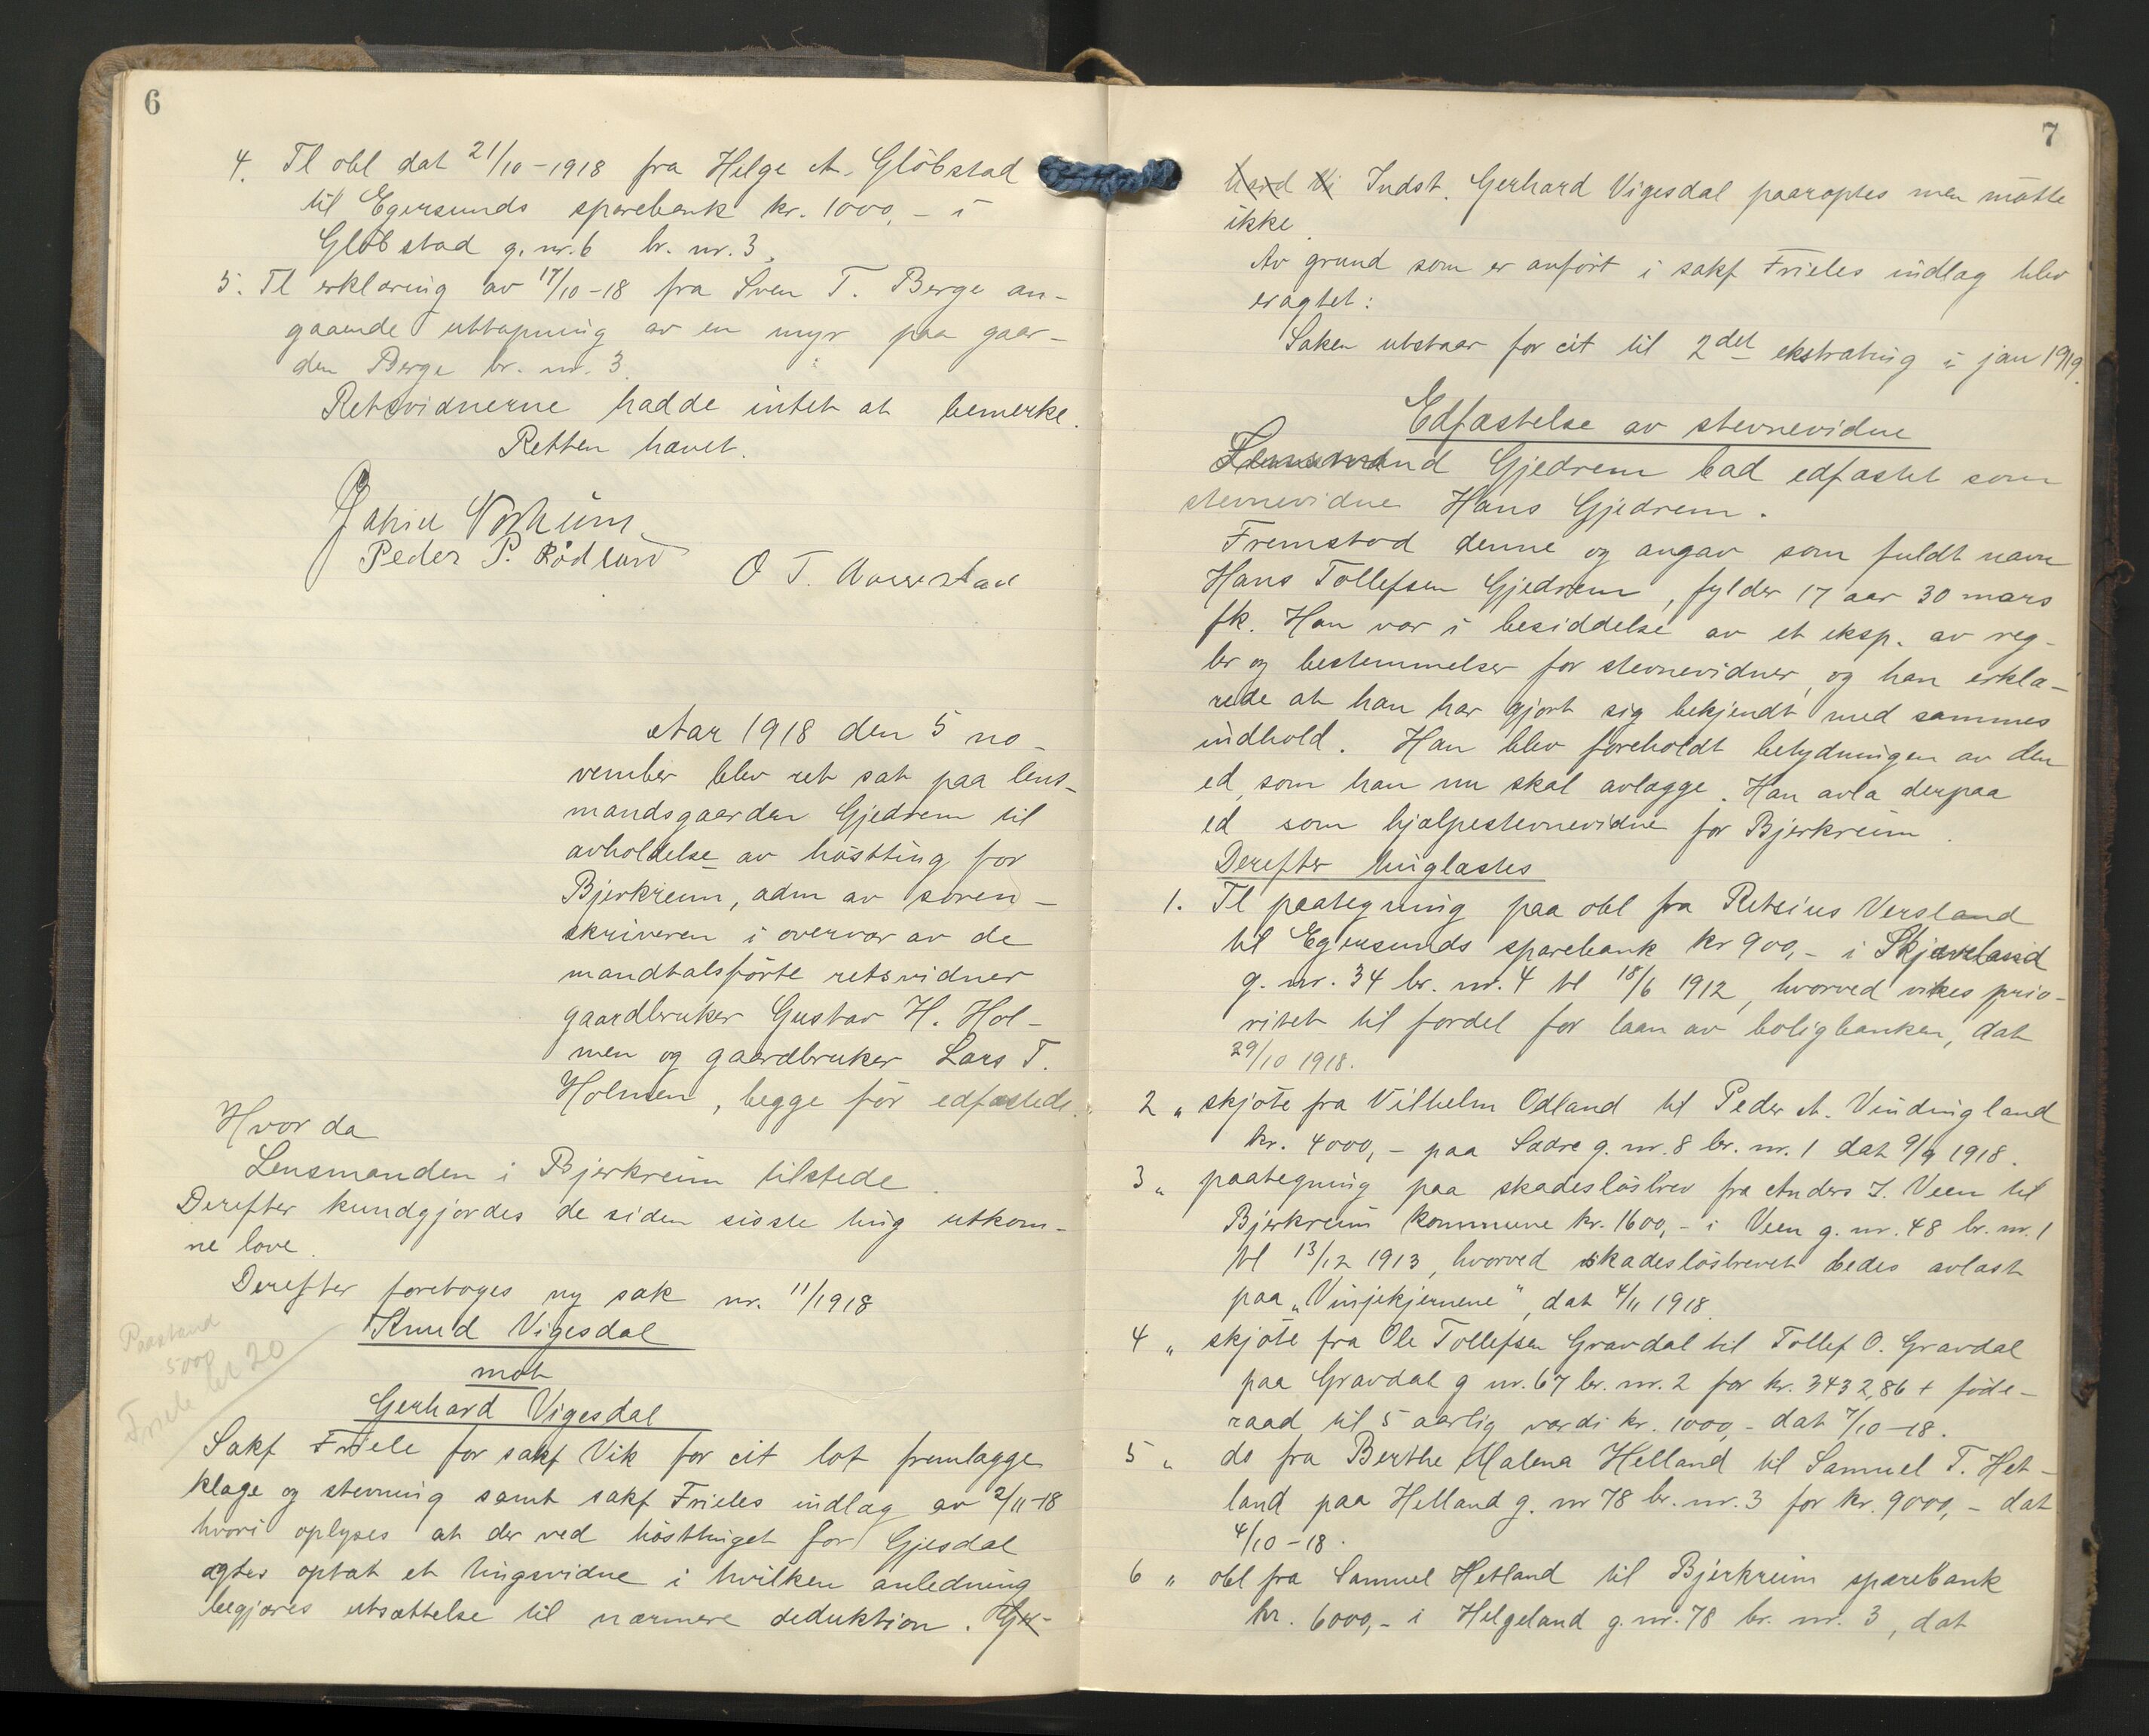 6
4. Tl obl dat 21/10-1918 fra Helge A. Glöbstad
til Egersunds sparebank kr. 1000,- i
Glöbstad g. nr. 6 br. nr. 3.
5. Tl erklæring av 17/10-18 fra Sven T. Berge an-
gaaende uttapning av en myr paa gaar-
den Berge br. nr. 3.
Retsvidnerne hadde intet at bemerke.
Retten hævet.
Peder P. Rødland
O T.
Aar 1918 den 5 no-
vember blev ret sat paa lens-
mandsgaarden Gjedrem til
avholdelse av høstting for
Bjerkreim, adm av soren-
skriveren i overvær av de
mandtalsførte retsvidner
gaardbruker Gustav H. Hol-
men og gaardbruker Lars T.
Holmen, begge før edfæstede.
Hvor da
Lensmanden i Bjerkreim tilstede.
Derefter kundgjordes de siden siste ting utkom-
ne love.
Derefter foretoges ny sak nr. 11/1918
Paastand
5000
Friele kr 20
Knud Vigesdal
mot
Gerhard Vigesdal
Sakf Friele for sakf Vik for cit lot fremlægge
klage og stevning samt sakf Frieles indlæg av 2/11-18
hvori oplyses at der ved høsttinget for Gjesdal
agtes optat et tingsvidne i hvilken anledning
begjæres utsættelse til nærmere deduktion. Ger-
7
Indst. Gerhard Vigesdal paaroptes men møtte
ikke.
Av grund som er anført i sakf Frieles indlæg blev
eragtet:
Saken utstaar for cit til 2det ekstrating i jan 1919.
Edfæstelse av stevnevidne
Lensmand Gjedrem bad edfæstet som
stevnevidne Hans Gjedrem.
Fremstod denne og angav som fuldt navn
Hans Tollefsen Gjedrem, fylder 17 aar 30 mars
fk. Han var i besiddelse av et eksp. av reg-
ler og bestemmelser for stevnevidner, og han erklæ-
rede at han har gjort sig bekjendt med sammes
indhold. Han blev foreholdt betydningen av den
ed, som han nu skal avlægge. Han avla derpaa
ed som hjælpestevnevidne for Bjerkreim.
Derefter tinglæstes
1. Tl paategning paa obl fra Retsius Versland
til Egersunds sparebank kr 900,- i Skjæveland
g. nr. 34 br. nr. 4 tl 18/6 1912, hvorved vikes prio-
ritet til fordel for laan av boligbanken, dat
29/10 1918.
2 " skjøte fra Vilhelm Odland til Peder A. Vindingland
kr. 4000,- paa Sædre g. nr. 8 br. nr. 1 dat 9/9 1918.
3 " paategning paa skadesløsbrev fra Anders J. Veen til
Bjerkreim kommune kr. 1600,- i Veen g. nr. 48 br. nr. 1
tl 13/12 1913, hvorved skadesløsbrevet bedes avlæst
paa "Vinjekjernene", dat 4/11 1918.
4 " skjøte fra Ole Tollefsen Gravdal til Tollef O. Gravdal
paa Gravdal g nr. 67 br. nr. 2 for kr. 3432,86 + føde-
raad til 5 aarlig værdi kr. 1000,- dat 7/10-18.
5 " do fra Berthe Malena Helland til Samuel T. Het-
land paa Helland g. nr 78 br. nr. 3 for kr. 9000,- dat
4/10-18.
6 " obl fra Samuel Hetland til Bjerkreim sparebank
kr. 6000,- i Helgeland g. nr. 78 br. nr. 3, dat